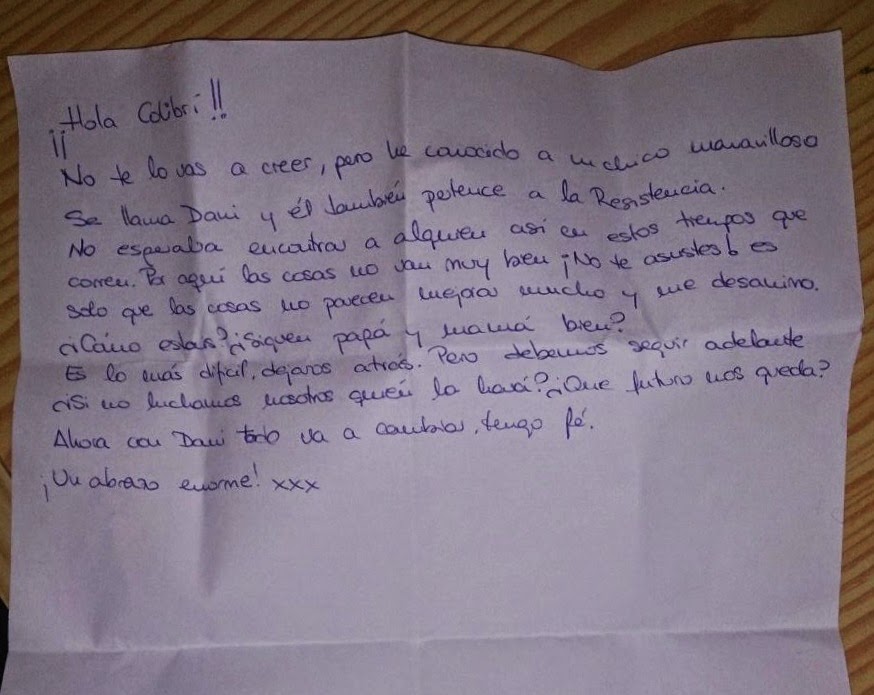 ¡¡Hola Colibrí!!
No te lo vas a creer, pero he conocido a un chico maravilloso
Se llama Dani y él también pertence a la Resistencia.
No esperaba encontrar a alguien así en estos tiempos que
corren. Por aquí las cosas no van muy bien ¡No te asustes! es
solo que las cosas no parecen mejorar mucho y me desanimo.
¿Cómo estas? ¿Siguen papá y mamá bien?
Es lo más difícil, dejaros atrás. Pero debemos seguir adelante
¿Si no luchamos nosotros quién lo hará? ¿Que futuro nos queda?
Ahora con Dani todo va a cambiar, tengo fé.
¡Un abrazo enorme! xxx